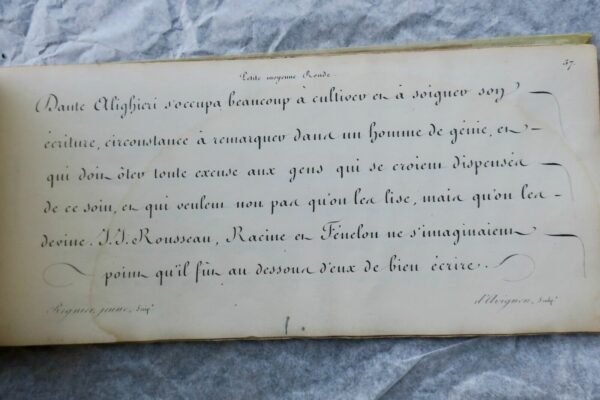 Petite moyenne Ronde.
37
Dante Alighieri s'occupa beaucoup à cultiver et à soigner son
écriture, circonstance à remarquer dans un homme de génie, et
qui doit ôter toute excuse aux gens qui se croient dispensés
de ce soin, et qui veulent non pas qu'on les lise, mais qu'on les
devine. J.J. Rousseau, Racine et Fénelon ne s'imaginaient
point qu'il fût au dessous d'eux de bien écrire.
jeune, Scrip.
d'Avignon, Sculp.